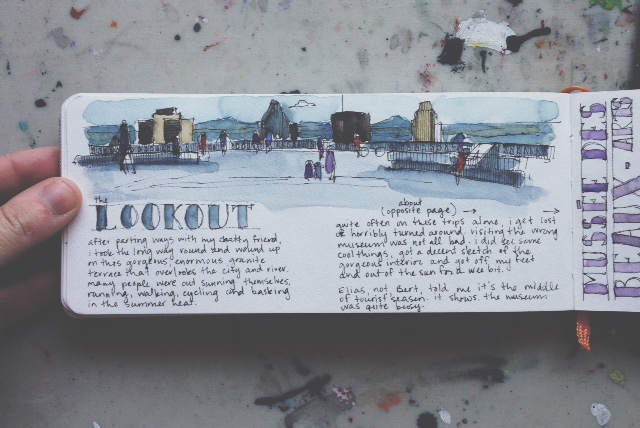 the
LOOKOUT
after parting ways with my chatty friend,
i took the long way round and wound up
on this gorgeous, enormous granite
terrace that overlooks the city and river.
many people were out sunning themselves,
running, walking, cycling and basking
in the summer heat.
about
(opposite page) →
quite often on these trips alone, i get lost
or horribly turned around. visiting the wrong
museum was not all bad. i did see some
cool things, got a decent sketch of the
gorgeous interior and got off my feet
and out of the sun for a wee bit.
Elias, not Bert, told me it's the middle
of tourist season. it shows. the museum
was quite busy.
MUSÉE DES
BEAUX-ARTS